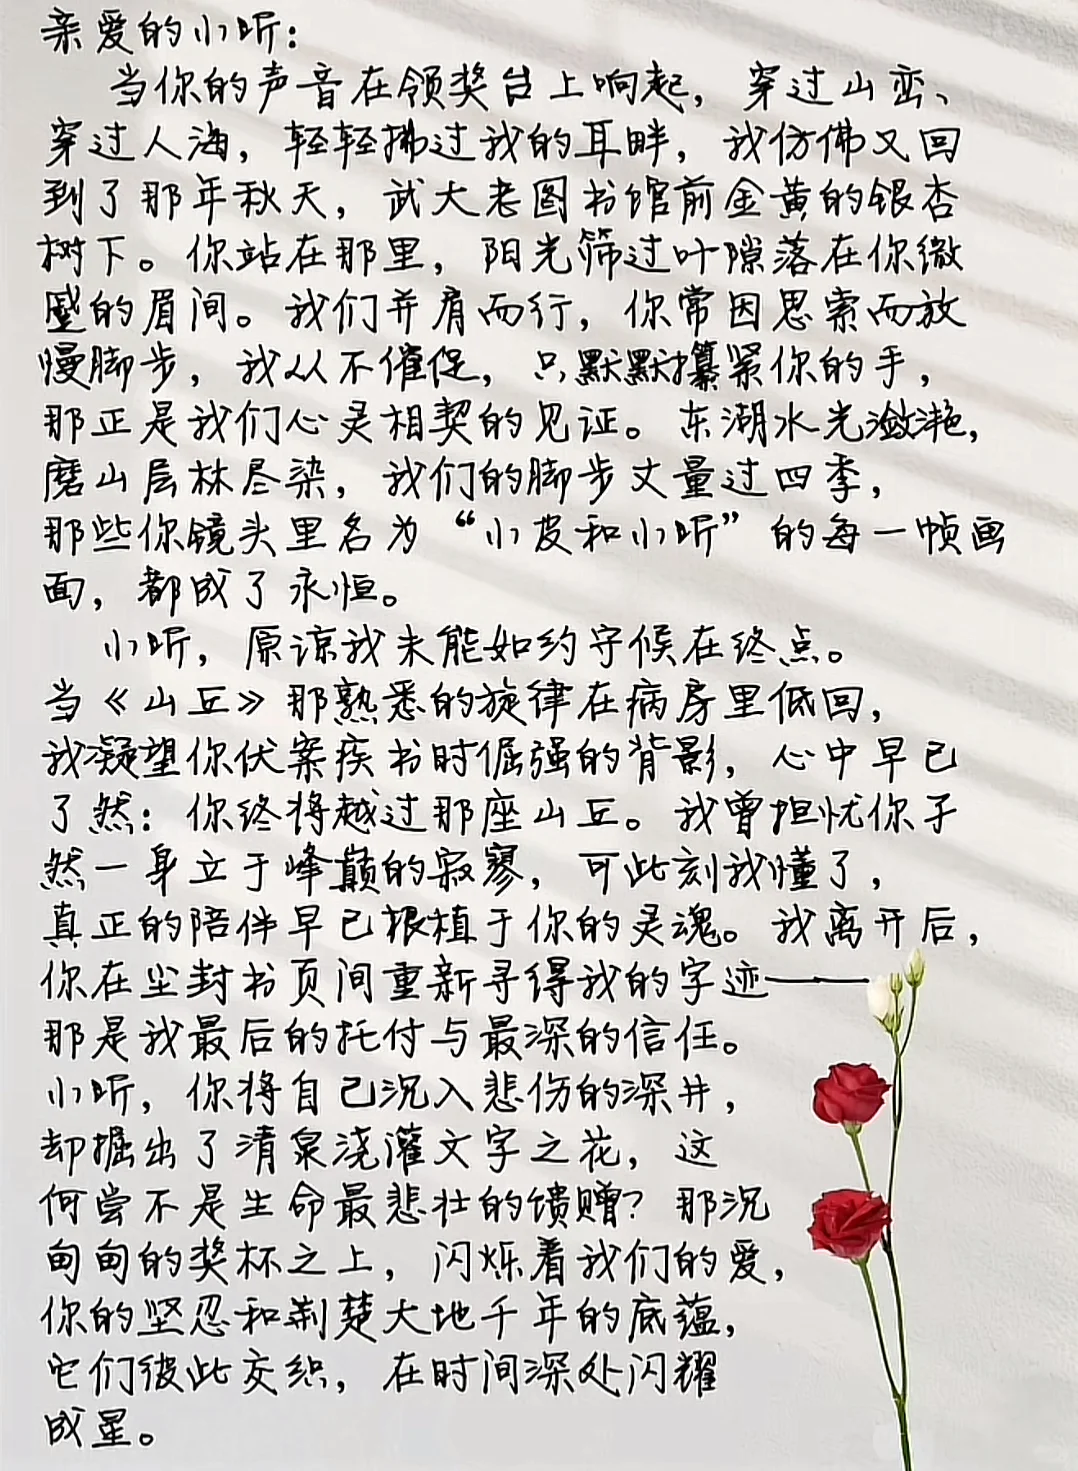 亲爱的小听：
当你的声音在领奖台上响起，穿过山峦、
穿过人海，轻轻拂过我的耳畔，我仿佛又回
到了那年秋天，武大老图书馆前金黄的银杏
树下。你站在那里，阳光筛过叶隙落在你微
蹙的眉间。我们并肩而行，你常因思索而放
慢脚步，我从不催促，只默默攥紧你的手，
那正是我们心灵相契的见证。东湖水光潋滟，
磨山层林尽染，我们的脚步丈量过四季，
那些你镜头里名为“小皮和小听”的每一帧画
面，都成了永恒。
小听，原谅我未能如约守候在终点。
当《山丘》那熟悉的旋律在病房里低回，
我凝望你伏案疾书时倔强的背影，心中早已
了然：你终将越过那座山丘。我曾担忧你孑
然一身立于峰巅的寂寥，可此刻我懂了，
真正的陪伴早已根植于你的灵魂。我离开后，
你在尘封书页间重新寻得我的字迹——
那是我最后的托付与最深的信任。
小听，你将自己沉入悲伤的深井，
却掘出了清泉浇灌文字之花，这
何尝不是生命最悲壮的馈赠？那沉
甸甸的奖杯之上，闪烁着我们的爱，
你的坚忍和荆楚大地千年的底蕴，
它们彼此交织，在时间深处闪耀
成星。